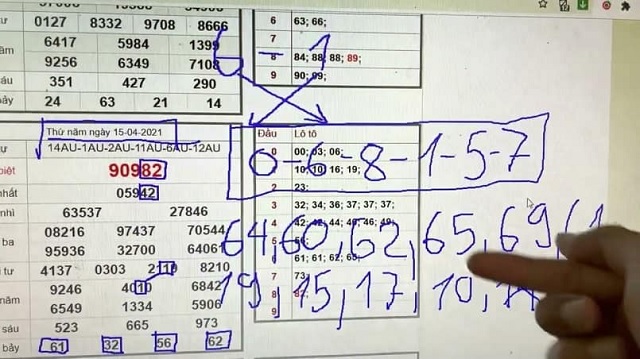 tư 0127 8332 9708 8666
năm 6417 5984 1399
9256 6349 7108
sáu 351 427 290
bảy 24 63 21 14
6 63; 66;
7
8 84; 88; 88; 89;
9 90; 99;
6 - 1
Thứ năm ngày 15-04-2021
14AU-1AU-2AU-11AU-6AU-12AU
biệt 90982
nhất 05942
nhì 63537 27846
ba 08216 97437 70544
95936 32700 64061
tư 4137 0303 2110 8210
năm 9246 4010 6842
6549 1334 5906
sáu 523 665 973
bảy 61 32 56 62
Đầu Lô tô
0 00; 03; 06;
10; 10; 16; 19;
2 23;
3 32; 34; 36; 37; 37; 37;
4 42; 42; 44; 46; 46; 49;
61; 61; 62; 65;
7 73;
8
9
0-6-8-1-5-7
64, 60, 62, 65, 69, 61
19, 15, 17, 10,